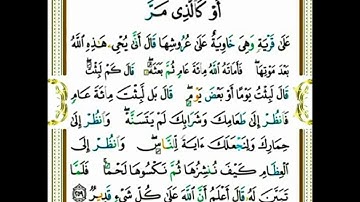 أَوْ كَالَّذِى مَرَّ
عَلَىٰ قَرْيَةٍ وَهِىَ خَاوِيَةٌ عَلَىٰ عُرُوشِهَا قَالَ أَنَّىٰ يُحْىِۦ هَـٰذِهِ ٱللَّهُ
بَعْدَ مَوْتِهَا ۖ فَأَمَاتَهُ ٱللَّهُ مِا۟ئَةَ عَامٍ ثُمَّ بَعَثَهُۥ ۖ قَالَ كَمْ لَبِثْتَ ۖ
قَالَ لَبِثْتُ يَوْمًا أَوْ بَعْضَ يَوْمٍ ۖ قَالَ بَل لَّبِثْتَ مِا۟ئَةَ عَامٍ
فَٱنظُرْ إِلَىٰ طَعَامِكَ وَشَرَابِكَ لَمْ يَتَسَنَّهْ ۖ وَٱنظُرْ إِلَىٰ
حِمَارِكَ وَلِنَجْعَلَكَ ءَايَةً لِّلنَّاسِ ۖ وَٱنظُرْ إِلَى
ٱلْعِظَامِ كَيْفَ نُنشِزُهَا ثُمَّ نَكْسُوهَا لَحْمًا ۚ فَلَمَّا
تَبَيَّنَ لَهُۥ قَالَ أَعْلَمُ أَنَّ ٱللَّهَ عَلَىٰ كُلِّ شَىْءٍ قَدِيرٌ ٢٥٩